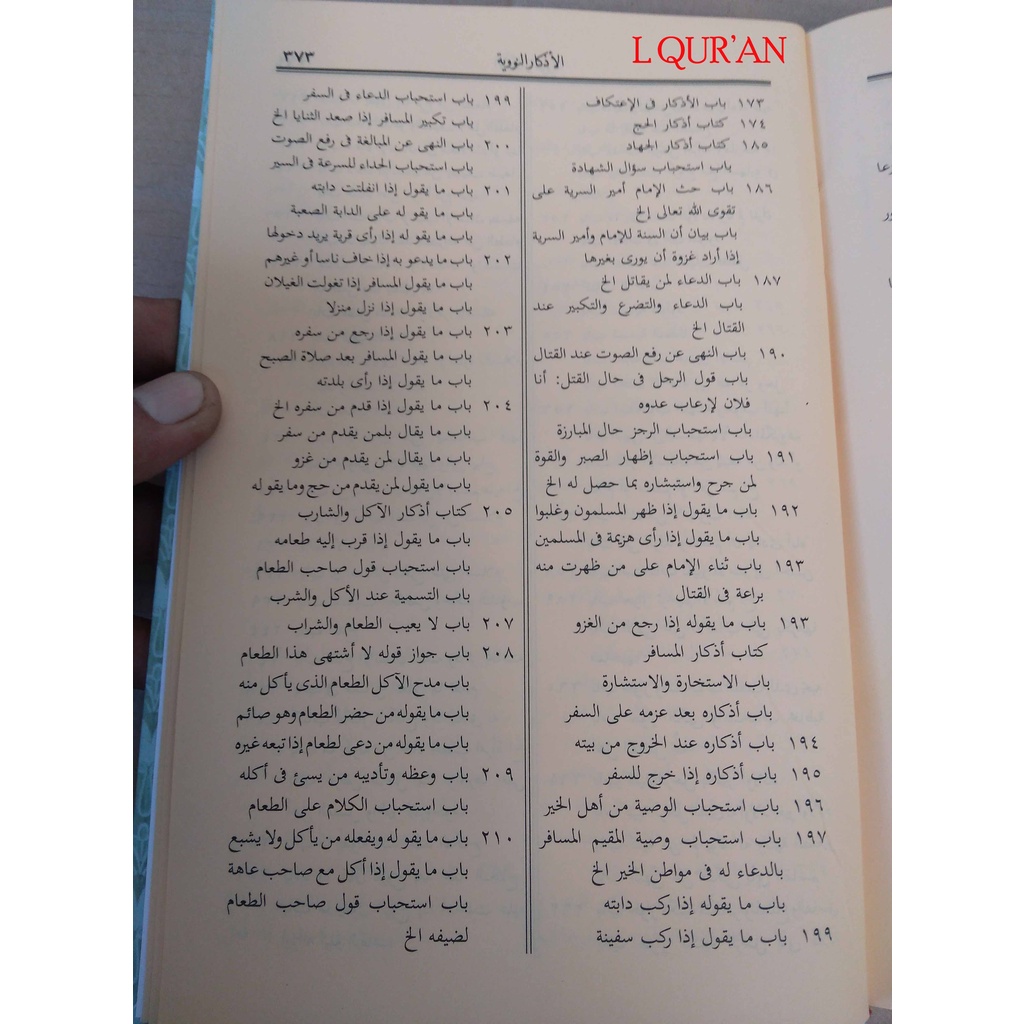 L QUR'AN
الأذكار النووية
٣٧٣
١٧٣ باب الأذكار فى الإعتكاف
١٧٤ كتاب أذكار الحج
١٨٥ كتاب أذكار الجهاد
باب استحباب سؤال الشهادة
١٨٦ باب حث الإمام أمير السرية على
تقوى الله تعالى إلخ
باب بيان أن السنة للإمام وأمير السرية
إذا أراد غزوة أن يورى بغيرها
١٨٧ باب الدعاء لمن يقاتل الخ
باب الدعاء والتضرع والتكبير عند
القتال الخ
١٩٠ باب النهى عن رفع الصوت عند القتال
باب قول الرجل فى حال القتل: أنا
فلان لإرعاب عدوه
باب استحباب الرجز حال المبارزة
١٩١ باب استحباب إظهار الصبر والقوة
لمن جرح واستبشاره بما حصل له الخ
١٩٢ باب ما يقول إذا ظهر المسلمون وغلبوا
باب ما يقول إذا رأى هزيمة فى المسلمين
١٩٣ باب ثناء الإمام على من ظهرت منه
براعة فى القتال
١٩٣ باب ما يقوله إذا رجع من الغزو
كتاب أذكار المسافر
باب الاستخارة والاستشارة
باب أذكاره بعد عزمه على السفر
١٩٤ باب أذكاره عند الخروج من بيته
١٩٥ باب أذكاره إذا خرج للسفر
١٩٦ باب استحباب الوصية من أهل الخير
١٩٧ باب استحباب وصية المقيم المسافر
بالدعاء له فى مواطن الخير الخ
باب ما يقوله إذا ركب دابته
١٩٩ باب ما يقول إذا ركب سفينة
١٩٩ باب استحباب الدعاء فى السفر
باب تكبير المسافر إذا صعد الثنايا الخ
٢٠٠ باب النهى عن المبالغة فى رفع الصوت
باب استحباب الحداء للسرعة فى السير
٢٠١ باب ما يقول إذا انفلتت دابته
باب ما يقو له على الدابة الصعبة
باب ما يقو له إذا رأى قرية يريد دخولها
٢٠٢ باب ما يدعو به إذا خاف ناسا أو غيرهم
باب ما يقول المسافر إذا تغولت الغيلان
باب ما يقول إذا نزل منزلا
٢٠٣ باب ما يقول إذا رجع من سفره
باب ما يقول المسافر بعد صلاة الصبح
باب ما يقول إذا رأى بلدته
٢٠٤ باب ما يقول إذا قدم من سفره الخ
باب ما يقال بلمن يقدم من سفر
باب ما يقال لمن يقدم من غزو
باب ما يقول لمن يقدم من حج وما يقو له
٢٠٥ كتاب أذكار الآكل والشارب
باب ما يقول إذا قرب إليه طعامه
باب استحباب قول صاحب الطعام
باب التسمية عند الأكل والشرب
٢٠٧ باب لا يعيب الطعام والشراب
٢٠٨ باب جواز قوله لا أشتهى هذا الطعام
باب مدح الآكل الطعام الذى يأكل منه
باب ما يقوله من حضر الطعام وهو صائم
باب ما يقوله من دعى لطعام إذا تبعه غيره
٢٠٩ باب وعظه وتأديبه من يسئ فى أكله
باب استحباب الكلام على الطعام
٢١٠ باب ما يقو له ويفعله من يأكل ولا يشبع
باب ما يقول إذا أكل مع صاحب عاهة
باب استحباب قول صاحب الطعام
لضيفه الخ